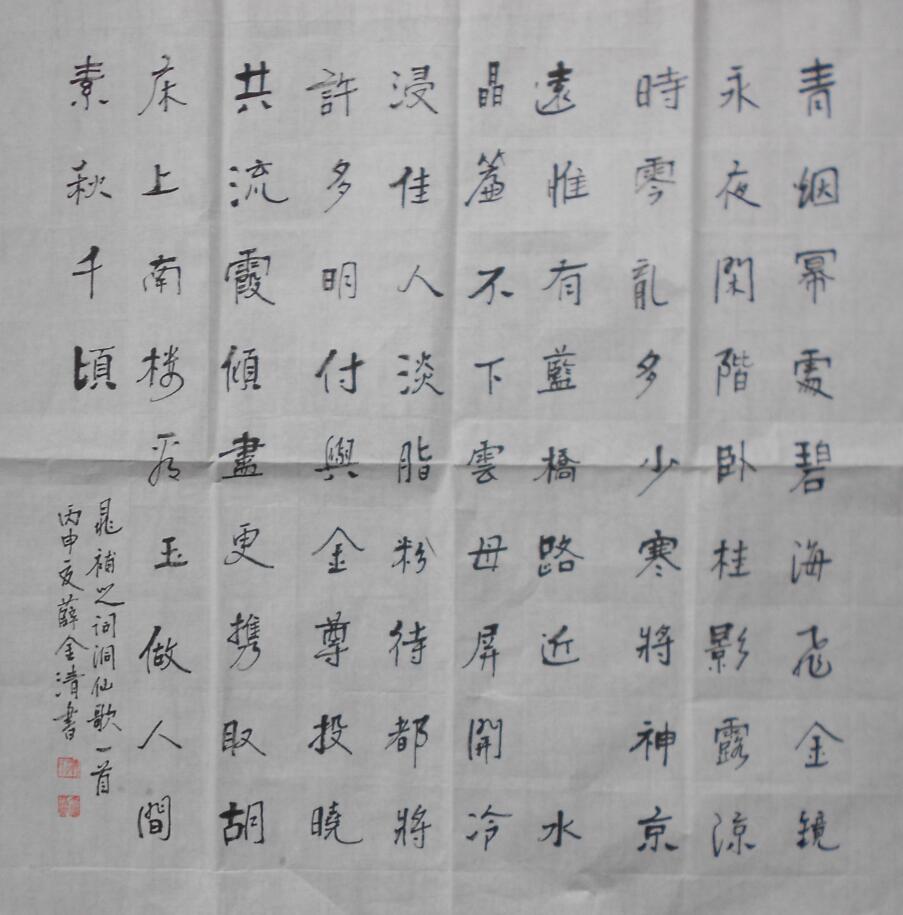 青烟幂處碧海飛金鏡
永夜閑階卧桂影露涼
時零亂多少寒將神京
遠惟有藍橋路近 水
晶簾不下雲母屏開冷
浸佳人淡脂粉待都將
許多明付與金尊投曉
共流霞傾盡更携取胡
床上南楼看玉做人間
素秋千頃
晁補之词洞仙歌一首
丙申夏薛金清書